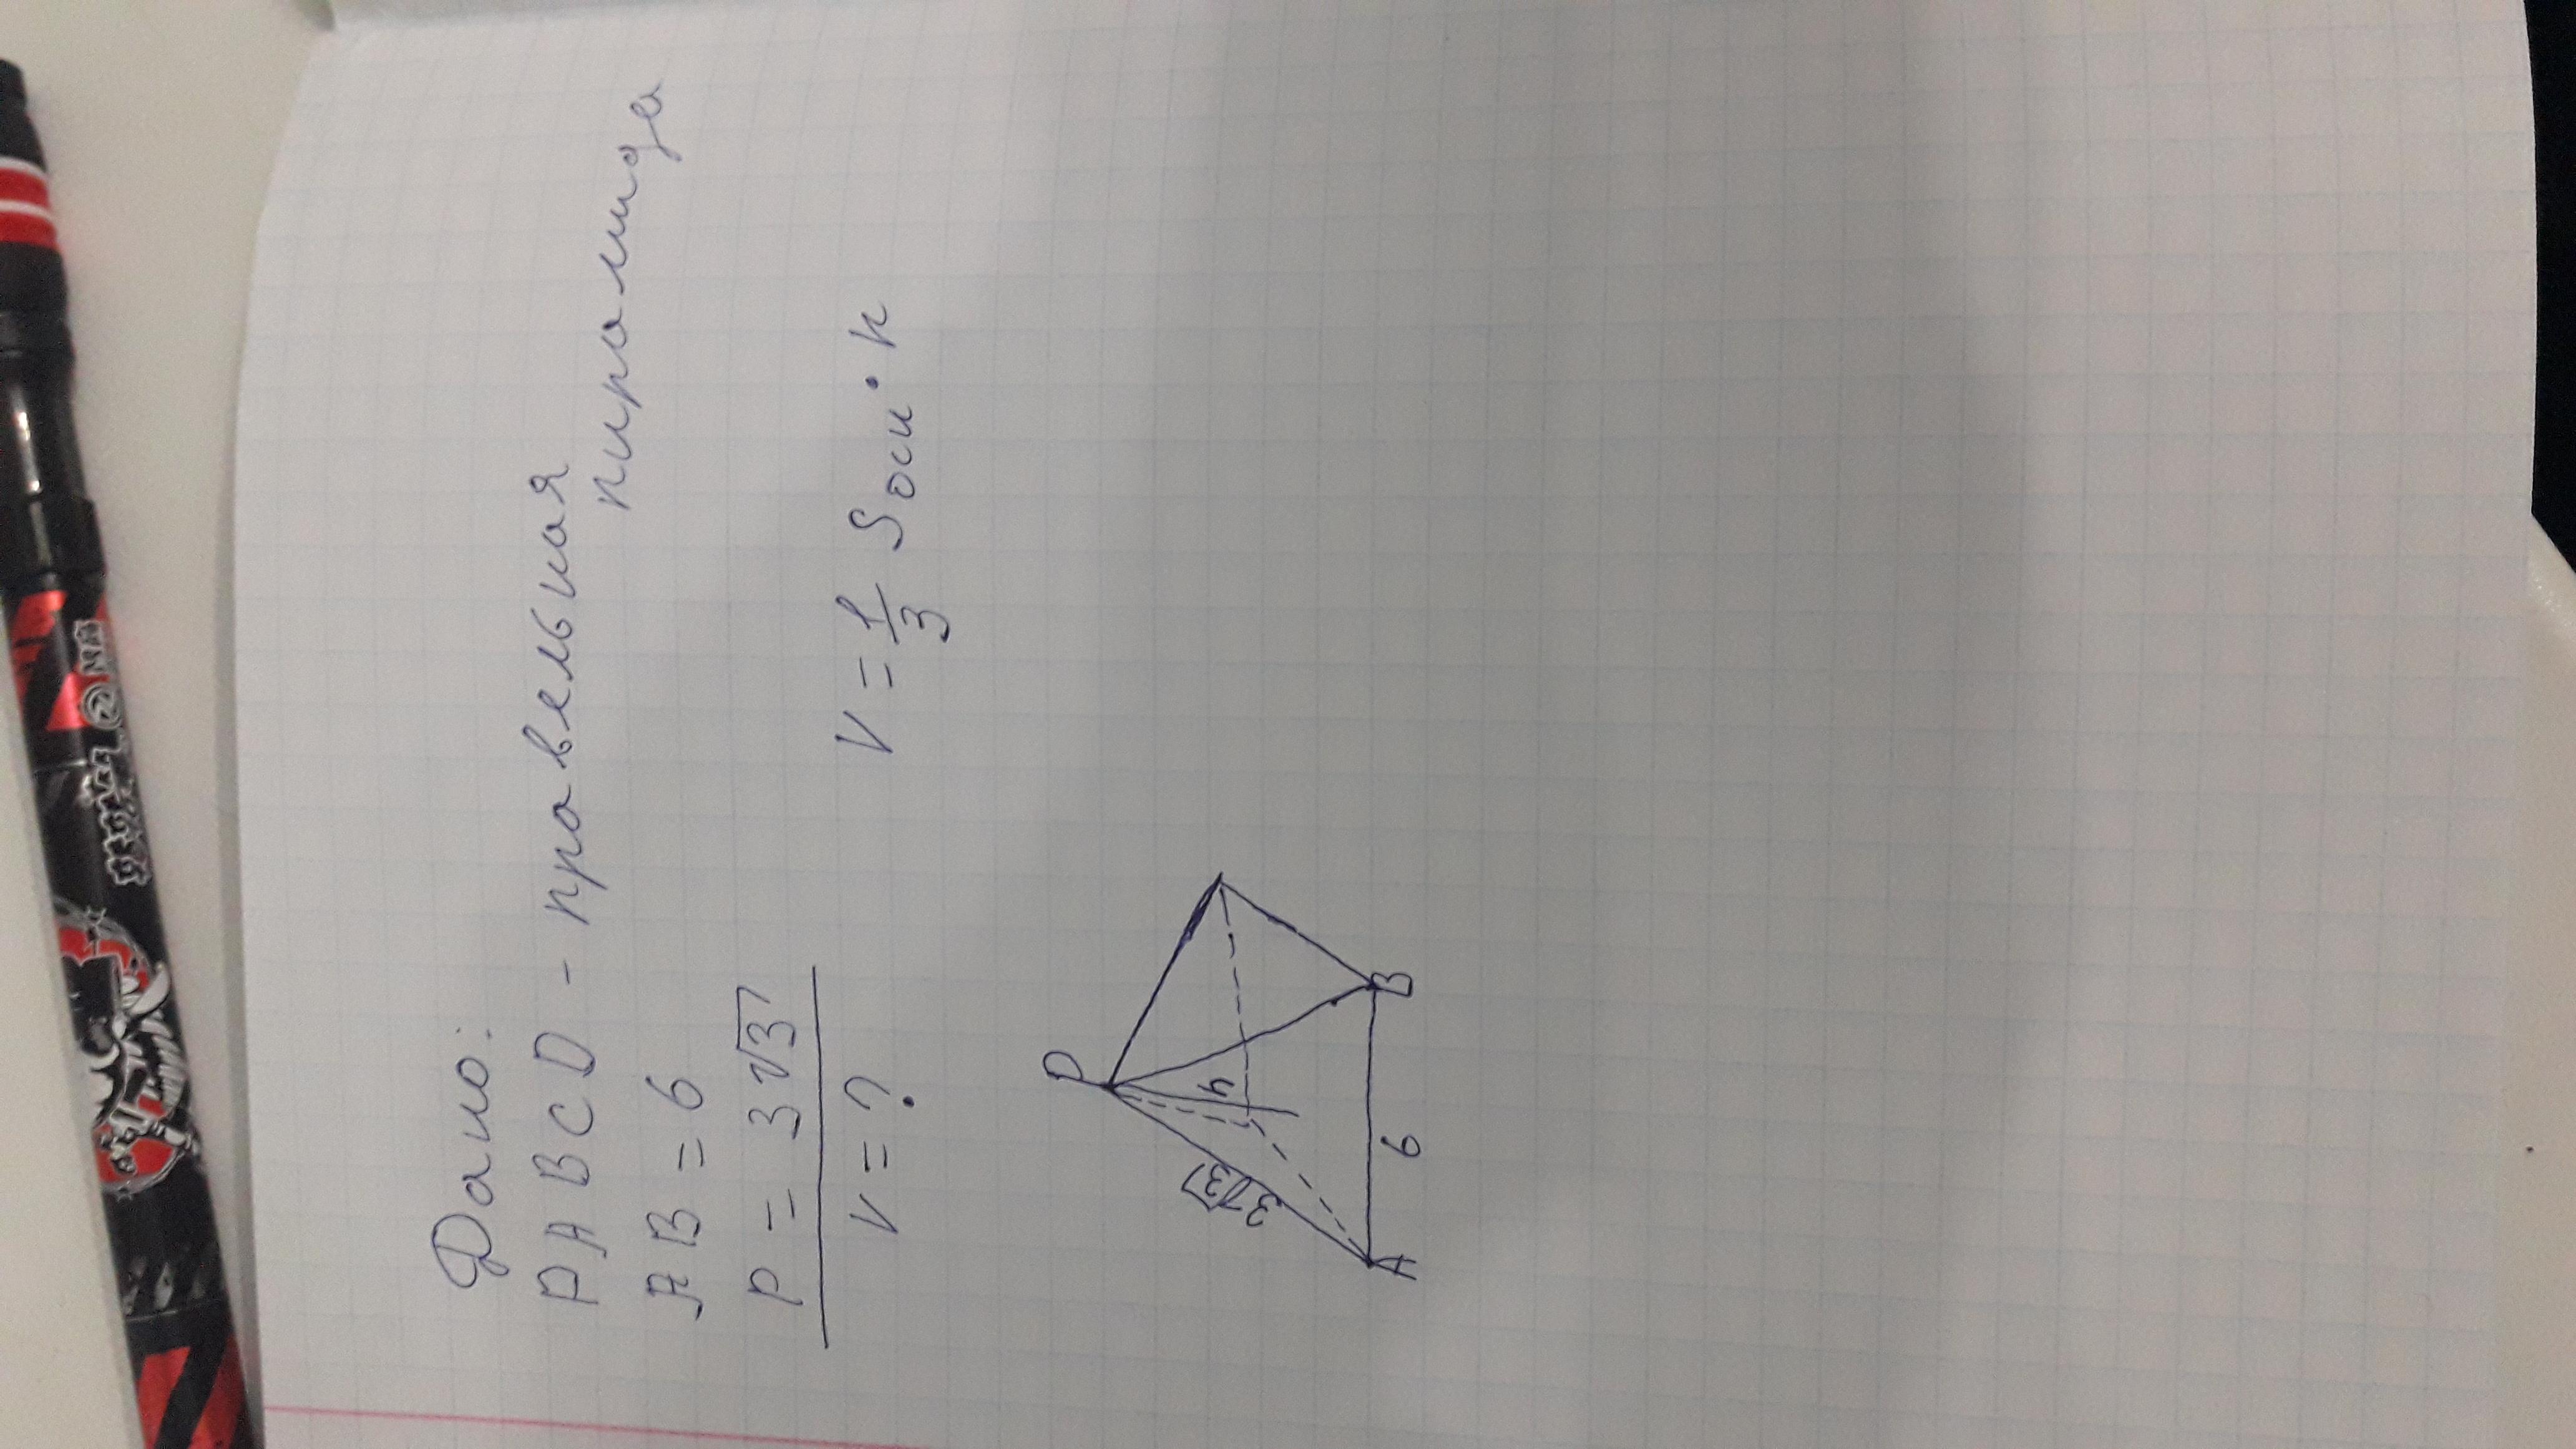 Дано:
PABCD - правельная
пирамида
AB = 6
P = 3√3
V = ?
V = 1/3 Sосн · h
P
h
3√3
6
A
B